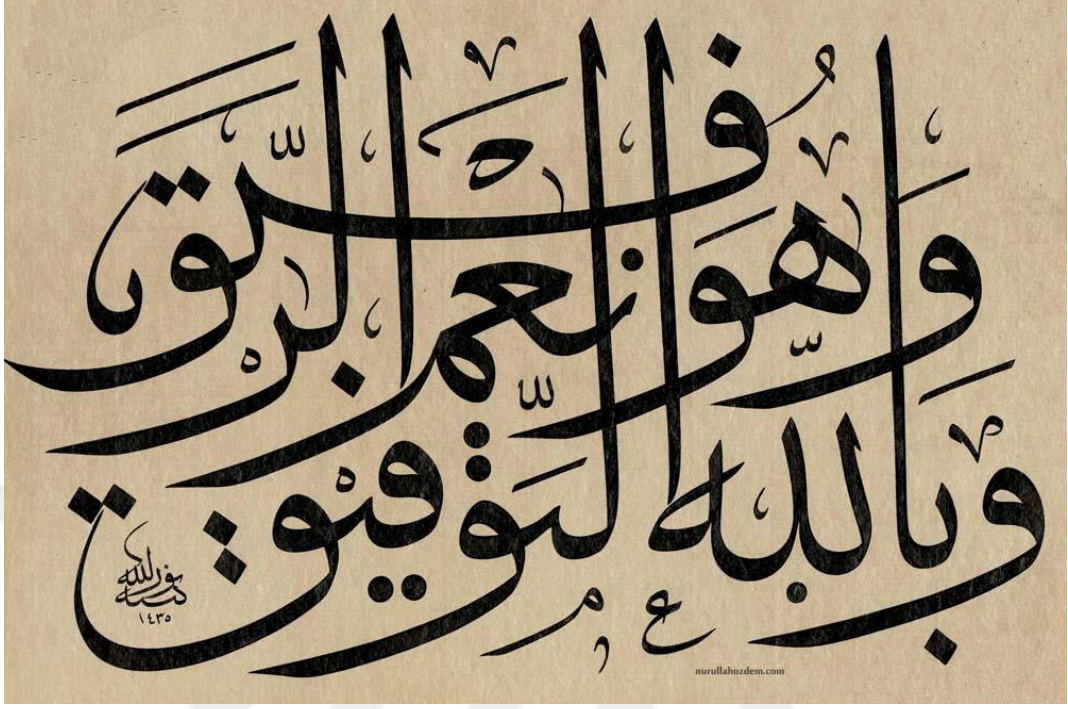 وبالله التوفيق
وهو نعم الرفيق
كتبه نورالله
١٤٣٥
nurullahozdem.com